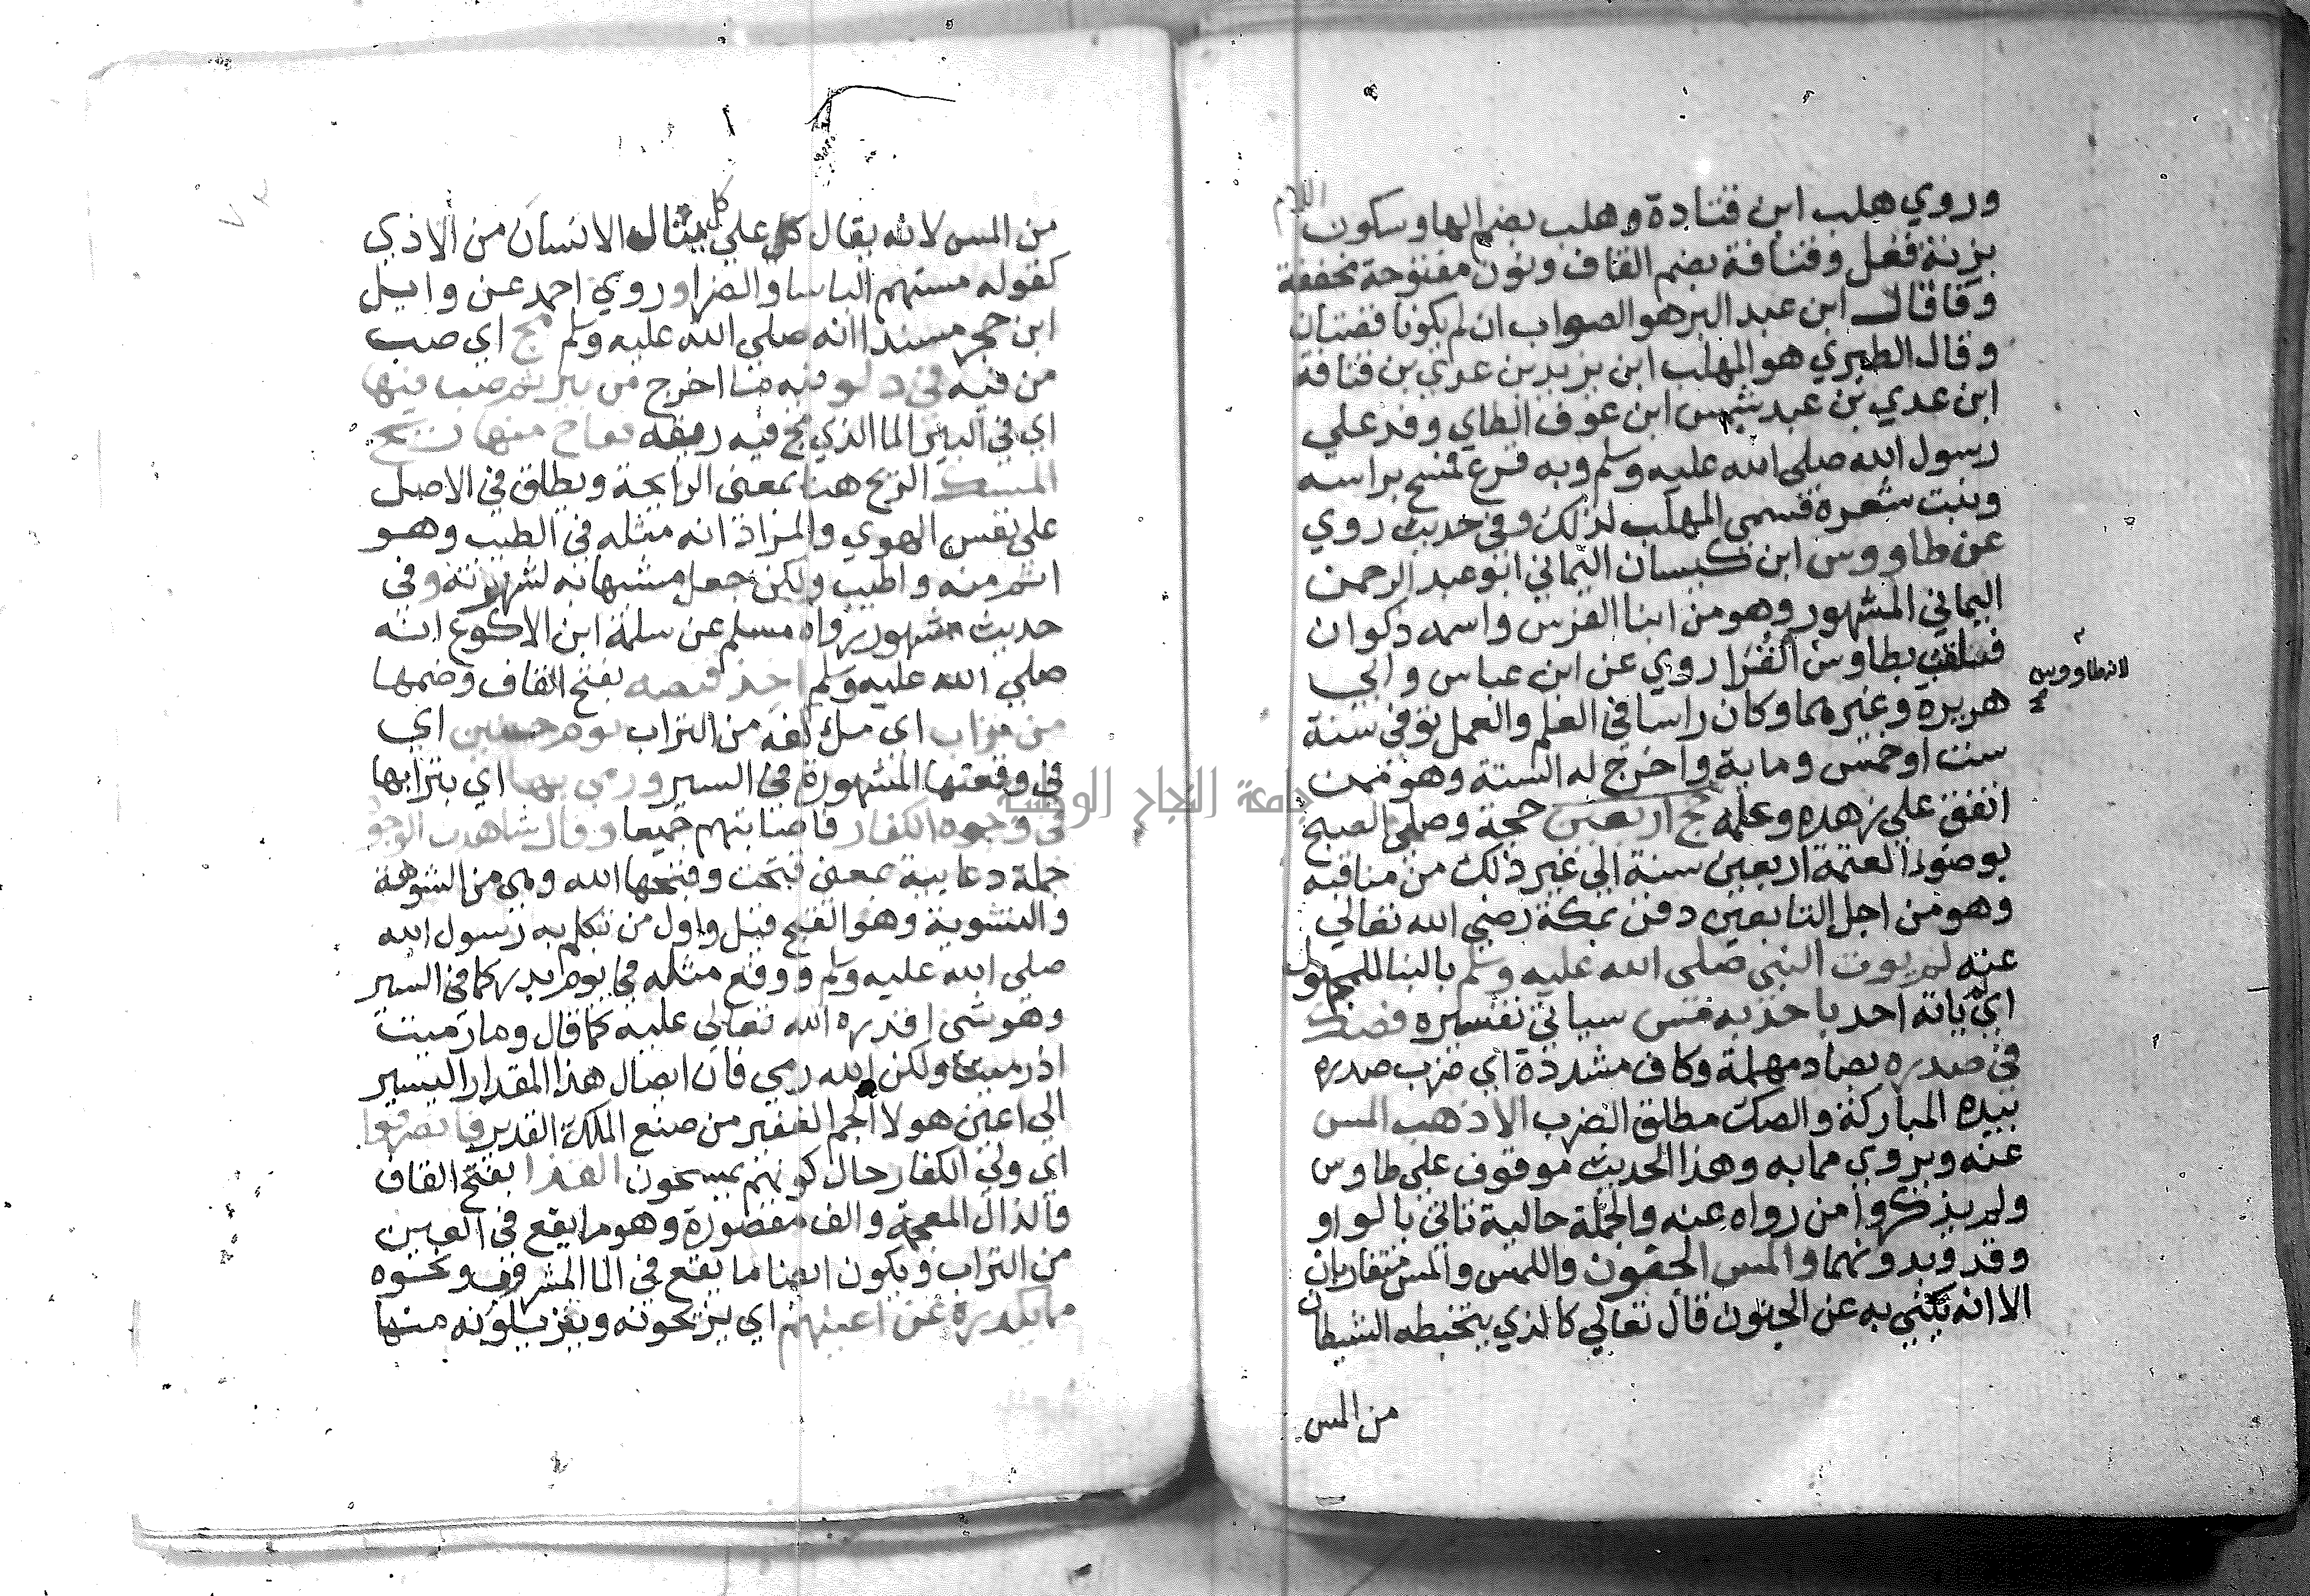 وروي هلب ابن قتادة وهلب بضم الها وسكون اللام
بزنة قفل وقنافة بضم القاف ونون مفتوحة مخففة
وفا قال ابن عبد البر هو الصواب ان لم يكونا قصتان
وقال الطبري هو المهلب ابن يزيد بن عدي بن قنافة
ابن عدي بن عبد شمس ابن عوف الطاي وفد علي
رسول الله صلي الله عليه وسلم وبه قرع فمسح براسه
ونبت شعره فسمي المهلب لذلك وفي حديث روي
عن طاووس ابن كيسان اليماني ابو عبد الرحمن
اليماني المشهور وهو من ابنا الفرس واسمه ذكوان
فتلقب بطاوس القرا روي عن ابن عباس وابي
لانه طاووس
هريرة وغيرهما وكان راسا في العلم والعمل توفي سنة
ست او خمس وماية واخرج له الستة وهو ممن
اتفق علي زهده وعلمه حج اربعين حجة وصلي الصبح
بوضوء العتمة اربعين سنة الي غير ذلك من مناقبه
وهو من اجل التابعين دفن بمكة رضي الله تعالي
عنه لم يوت النبي صلي الله عليه وسلم بالبنا للمجهول
اي ياته احد باحد به مس سياتي تفسيره فصك
في صدره بصاد مهملة وكاف مشددة اي ضرب صدره
بيده المباركة والصك مطلق الضرب الا ذهب المس
عنه ويروي ما به وهذا الحديث موقوف علي طاوس
ولم يذكروا من رواه عنه والجملة حالية تاتي بالواو
وقد وبدونهما والمس الجنون واللمس والمس متقاربان
الا انه يكني به عن الجنون قال تعالي كالذي يتخبطه الشيطان
من المس
من المس لانه يقال كل علي كل ينال الانسان من الاذي
كقوله مستهم الباسا والضرا وروي احمد عن وايل
ابن حجر مسندا انه صلي الله عليه وسلم مج اي صب
من فيه في دلو فيه ما اخرج من بير ثم صب فيها
اي في البير الما الذي مج فيه ريقه ففاح منها ريح
المسك الريح هنا بمعني الرايحة ويطلق في الاصل
علي نفس الهوي والمراد انه مثله في الطيب وهو
اتم منه واطيب ولكن جعل مشبها به لشهرته وفي
حديث مشهور رواه مسلم عن سلمة ابن الاكوع انه
صلي الله عليه وسلم اخذ قبضه بفتح القاف وضمها
من تراب اي ملء كفه من التراب يوم حنين اي
في وقعتها المشهورة في السير ورمي بها اي بترابها
في وجوه الكفار فاصابتهم جميعا وقال شاهت الوجوه
جملة دعايية بمعني قبحت وقبحها الله وهي من الشوهة
والتشوية وهو القبح قيل واول من تكلم به رسول الله
صلي الله عليه وسلم ووقع مثله في يوم بدر كما في السير
وهو شي اقدره الله تعالي عليه كما قال وما رميت
اذ رميت ولكن الله رمي فان ايصال هذا المقدار اليسير
الي اعين هولا الجم الغفير من صنع الملك القدير فانصرفوا
اي ولي الكفار حال كونهم يمسحون القذا بفتح القاف
والذال المعجمة والف مقصورة وهو ما يقع في العين
من التراب ويكون ايضا ما يقع في الما المشروب ونحوه
مما يكدره عن اعينهم اي يزيحونه ويزيلونه منها
جامعة النجاح الوطنية